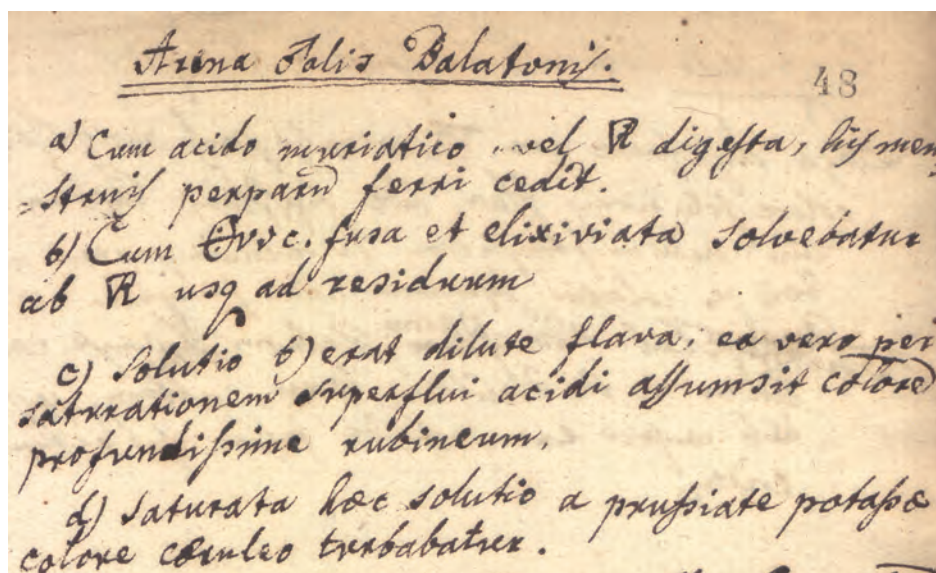 Arena Salis Balatonis.
48
a) Cum acido muriatico vel R digesta, hijs men
=struis perparū ferri cedit.
b) Cum c. fusa et elixiviata solvebatur
ab R usq ad residuum
c) Solutio b) erat dilute flava, ea vero per
saturationem superflui acidi assumsit colorē
profundissime rubineum.
d) Saturata hæc solutio a prussiate potassæ
colore cæruleo turbabatur.